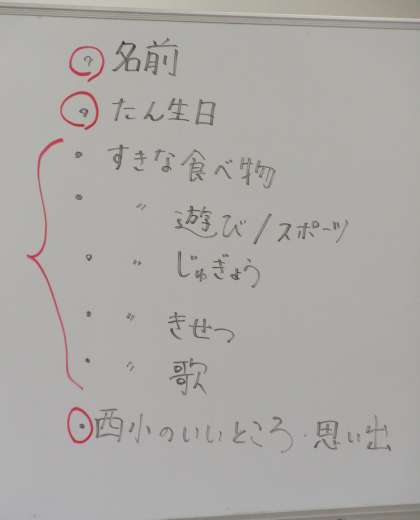 ・名前
・たん生日
・すきな食べ物
・ 〃 遊び/スポーツ
・ 〃 じゅぎょう
・ 〃 きせつ
・ 〃 歌
・西小のいいところ・思い出